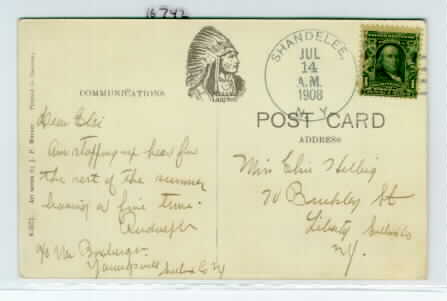 16742
COMMUNICATIONS
SHANDELEE,
JUL
14
A.M.
1908
N.Y.
POST CARD
ADDRESS
Dear Elsie
Am stopping up here for
the rest of the summer
having a fine time.
Rudolph
c/o Van
Youngsville Sullivan Co NY
Miss Elsie Hellbig
70 Buckley St
Liberty Sullivan Co
N.Y.